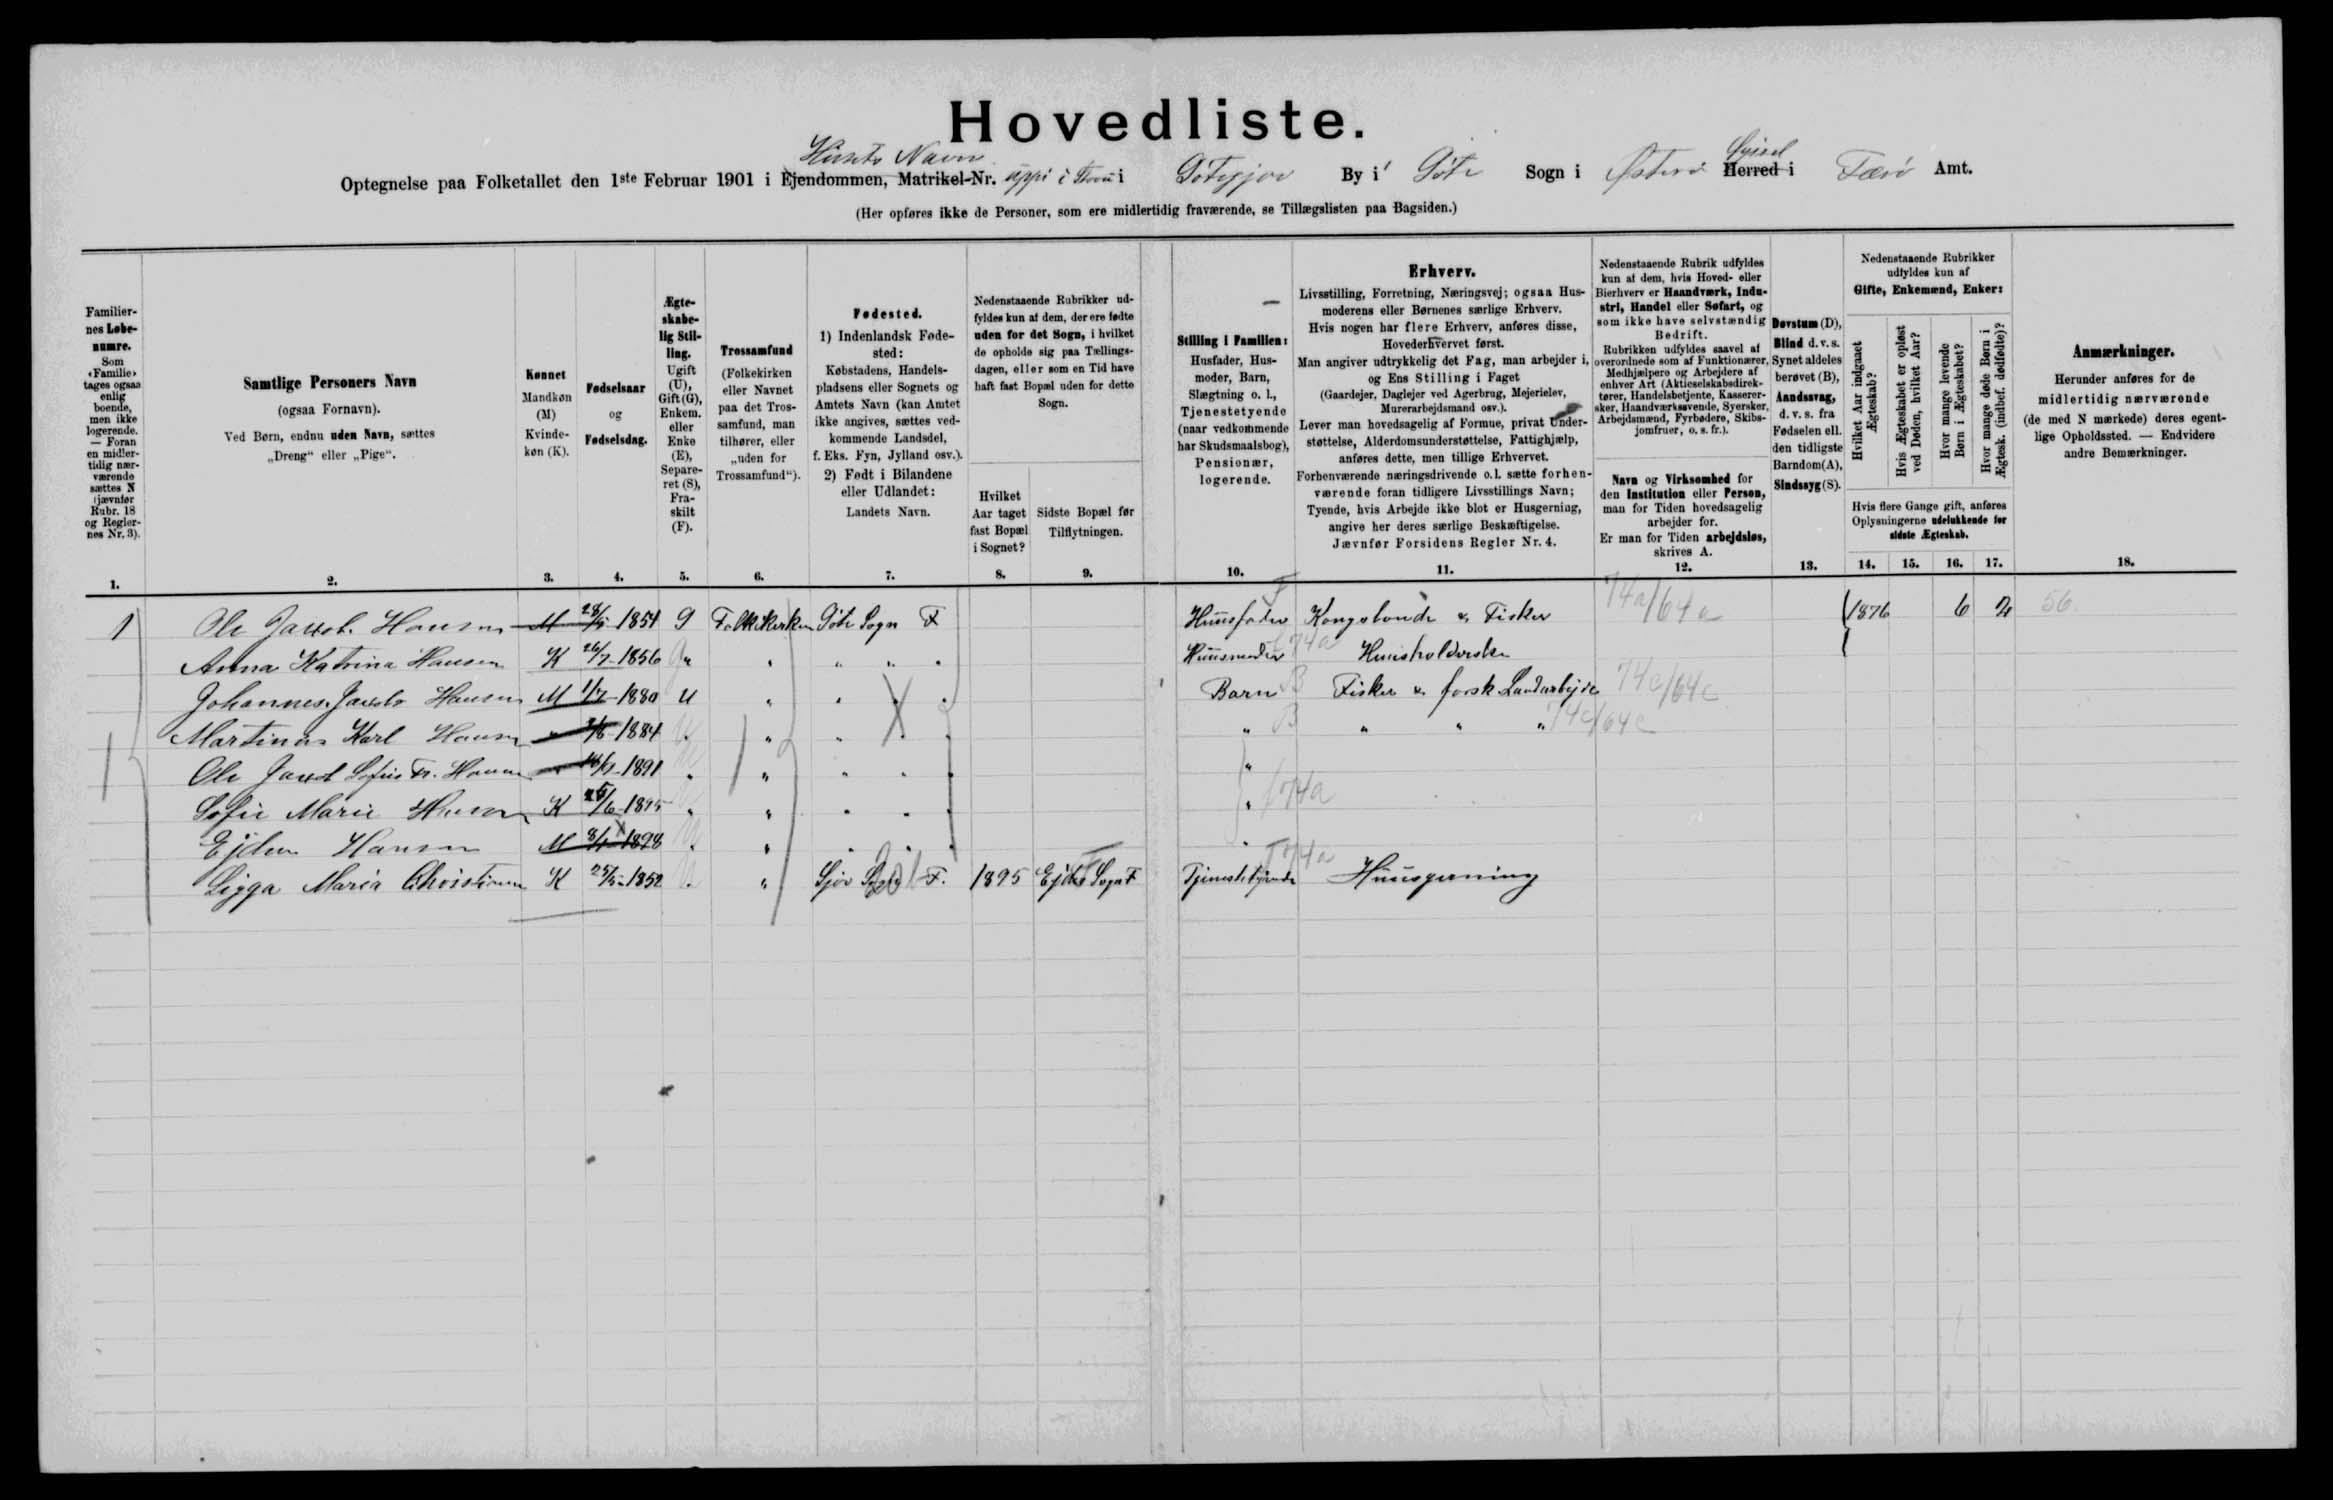 Hovedliste.
Husets Navn Syssel
Optegnelse paa Folketallet den 1ste Februar 1901 i Ejendommen, Matrikel-Nr. uppi i i Götegjov By i Göte Sogn i Østerö Herred i Færö Amt.
(Her opføres ikke de Personer, som ere midlertidig fraværende, se Tillægslisten paa Bagsiden.)
Familier-
nes Løbe-
numre.
Som
„Familie“
tages ogsaa
enlig
boende,
men ikke
logerende.
— Foran
en midler-
tidig nær-
værende
sættes N
(jævnfør
Rubr. 18
og Regler-
nes Nr. 3).
1.
Samtlige Personers Navn
(ogsaa Fornavn).
Ved Børn, endnu uden Navn, sættes
„Dreng“ eller „Pige“.
2.
Kønnet
Mandkøn
(M)
Kvinde-
køn (K).
3.
Fødselsaar
og
Fødselsdag.
4.
Ægte-
skabe-
lig Stil-
ling.
Ugift
(U),
Gift (G),
Enkem.
eller
Enke
(E),
Separe-
ret (S),
Fra-
skilt
(F).
5.
Trossamfund
(Folkekirken
eller Navnet
paa det Tros-
samfund, man
tilhører, eller
„uden for
Trossamfund“).
6.
Fødested.
1) Indenlandsk Føde-
sted:
Købstadens, Handels-
pladsens eller Sognets og
Amtets Navn (kan Amtet
ikke angives, sættes ved-
kommende Landsdel,
f. Eks. Fyn, Jylland osv.).
2) Født i Bilandene
eller Udlandet:
Landets Navn.
7.
Nedenstaaende Rubrikker ud-
fyldes kun af dem, der ere fødte
uden for det Sogn, i hvilket
de opholde sig paa Tællings-
dagen, eller som en Tid have
haft fast Bopæl uden for dette
Sogn.
Hvilket
Aar taget
fast Bopæl
i Sognet?
8.
Sidste Bopæl før
Tilflytningen.
9.
Stilling i Familien:
Husfader, Hus-
moder, Barn,
Slægtning o. l.,
Tjenestetyende
(naar vedkommende
har Skudsmaalsbog),
Pensionær,
logerende.
10.
Erhverv.
Livsstilling, Forretning, Næringsvej; ogsaa Hus-
moderens eller Børnenes særlige Erhverv.
Hvis nogen har flere Erhverv, anføres disse,
Hovederhvervet først.
Man angiver udtrykkelig det Fag, man arbejder i,
og Ens Stilling i Faget
(Gaardejer, Daglejer ved Agerbrug, Mejerielev,
Murerarbejdsmand osv.).
Lever man hovedsagelig af Formue, privat Under-
støttelse, Alderdomsunderstøttelse, Fattighjælp,
anføres dette, men tillige Erhvervet.
Forhenværende næringsdrivende o. l. sætte forhen-
værende foran tidligere Livsstillings Navn;
Tyende, hvis Arbejde ikke blot er Husgerning,
angive her deres særlige Beskæftigelse.
Jævnfør Forsidens Regler Nr. 4.
11.
Nedenstaaende Rubrik udfyldes
kun af dem, hvis Hoved- eller
Bierhverv er Haandværk, Indu-
stri, Handel eller Søfart, og
som ikke have selvstændig
Bedrift.
Rubrikken udfyldes saavel af
overordnede som af Funktionærer,
Medhjælpere og Arbejdere af
enhver Art (Aktieselskabsdirek-
tører, Handelsbetjente, Kasserer-
sker, Haandværkssvende, Syersker,
Arbejdsmænd, Fyrbødere, Skibs-
jomfruer, o. s. fr.).
Navn og Virksomhed for
den Institution eller Person,
man for Tiden hovedsagelig
arbejder for.
Er man for Tiden arbejdsløs,
skrives A.
12.
Døvstum (D),
Blind d. v. s.
Synet aldeles
berøvet (B),
Aandssvag,
d. v. s. fra
Fødselen ell.
den tidligste
Barndom (A),
Sindssyg (S).
13.
Nedenstaaende Rubrikker
udfyldes kun af
Gifte, Enkemænd, Enker:
Hvilket Aar indgaaet
Ægteskab?
Hvis Ægteskabet er opløst
ved Døden, hvilket Aar?
Hvor mange levende
Børn i Ægteskabet?
Hvor mange døde Børn i
Ægtesk. (indbef. dødfødte)?
Hvis flere Gange gift, anføres
Oplysningerne udelukkende for
sidste Ægteskab.
14. 15. 16. 17.
Anmærkninger.
Herunder anføres for de
midlertidig nærværende
(de med N mærkede) deres egent-
lige Opholdssted. — Endvidere
andre Bemærkninger.
18.
1 Ole Jacob Hansen M 28/5 1851 G Folkekirken Göte Sogn F Huusfader F Kongsbonde & Fisker 74a/64a 1876 6 2 56
Anna Katrina Hansen K 26/7 1856 G " " " Huusmoder f74a Huusholderske
Johannes Jacob Hansen M 1/7 1880 U " " " Barn B Fisker & forsk. Landarbejde 74c/64c
Martinus Karl Hansen " /8 1884 U " " " " B " " " 74c/64c
Ole Jacob Sofus Hansen 1891 " " " "
Sofie Marie Hansen K 25/6 1895 " " " " f74a
Ejdun Hansen M 8/1 1898 " " " "
Sigga Maria Christiansen K 25/5 1852 U " Sjov Sogn F. 1895 Ejde Sogn F Tjenestetyende T74a Huusgerning